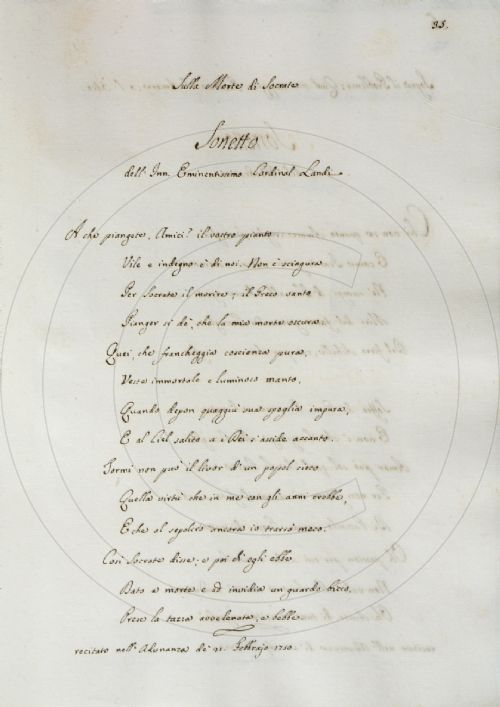 35.
Sulla Morte di Socrate
Sonetto
dell' Inn. Eminentissimo Cardinal Landi.
A che piangete, Amici? il vostro pianto
Vile e indegno è di noi. Non è sciagura
Per Socrate il morire; il Greco
Pianger si dè, che la mia morte oscura.
Quei, che francheggia coscienza pura,
Veste immortale e luminoso manto,
Quando depon quaggiù sua spoglia impura,
E al Ciel salito a i Dei s'asside accanto.
Tormi non può il livor di un popol cieco
Quella virtù che in me con gli anni crebbe,
E che al sepolcro ancora io trarrò meco.
Così Socrate disse; e poi ch'egli ebbe
Dato a morte e ad invidia un guardo bieco,
Prese la tazza avvelenata, e bebbe.
recitato nell' Adunanza de' 21. Febbrajo 1750.